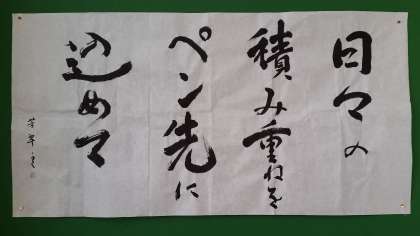 日々の
積み重ねを
ペン先に
込めて